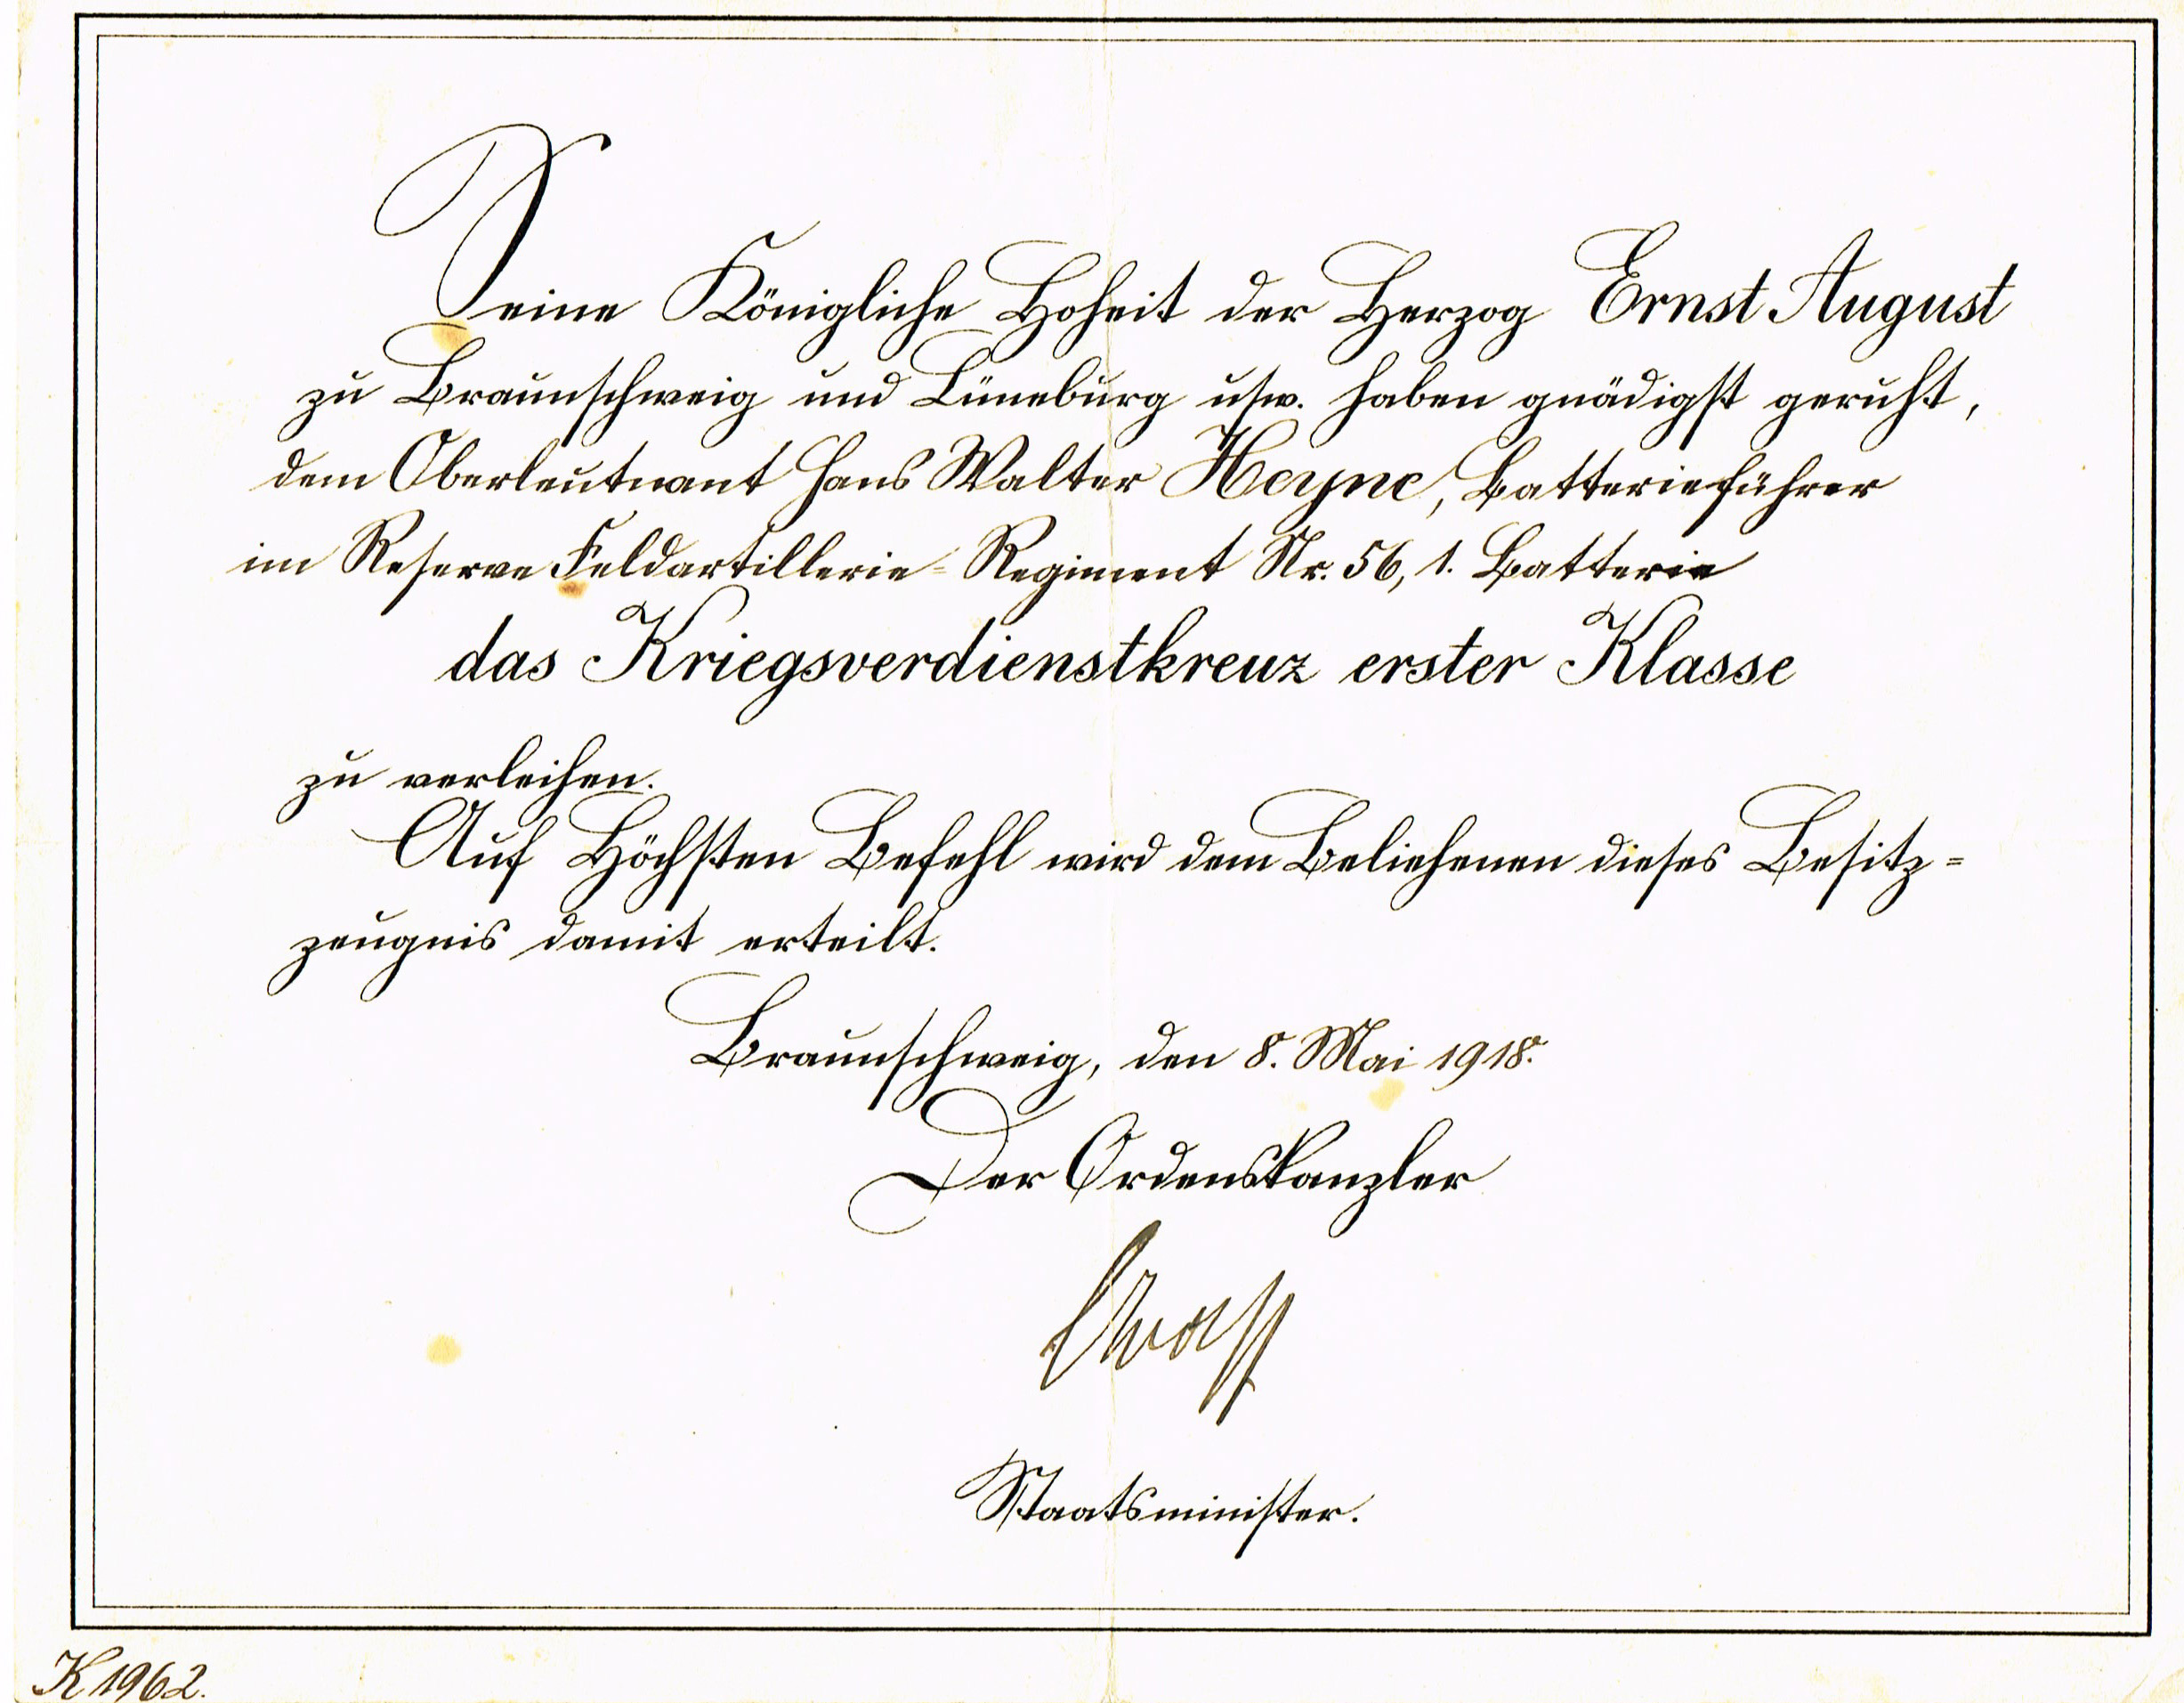 Seine Königliche Hoheit der Herzog Ernst August
zu Braunschweig und Lüneburg usw. haben gnädigst geruht,
dem Oberleutnant Hans Walter Heyne, Batterieführer
im Reserve Feldartillerie-Regiment Nr. 56, 1. Batterie
das Kriegsverdienstkreuz erster Klasse
zu verleihen.
Auf Höchsten Befehl wird dem Beliehenen dieses Besitz-
zeugnis damit erteilt.
Braunschweig, den 8. Mai 1918.
Der Ordenskanzler
Staatsminister.
K 1962.